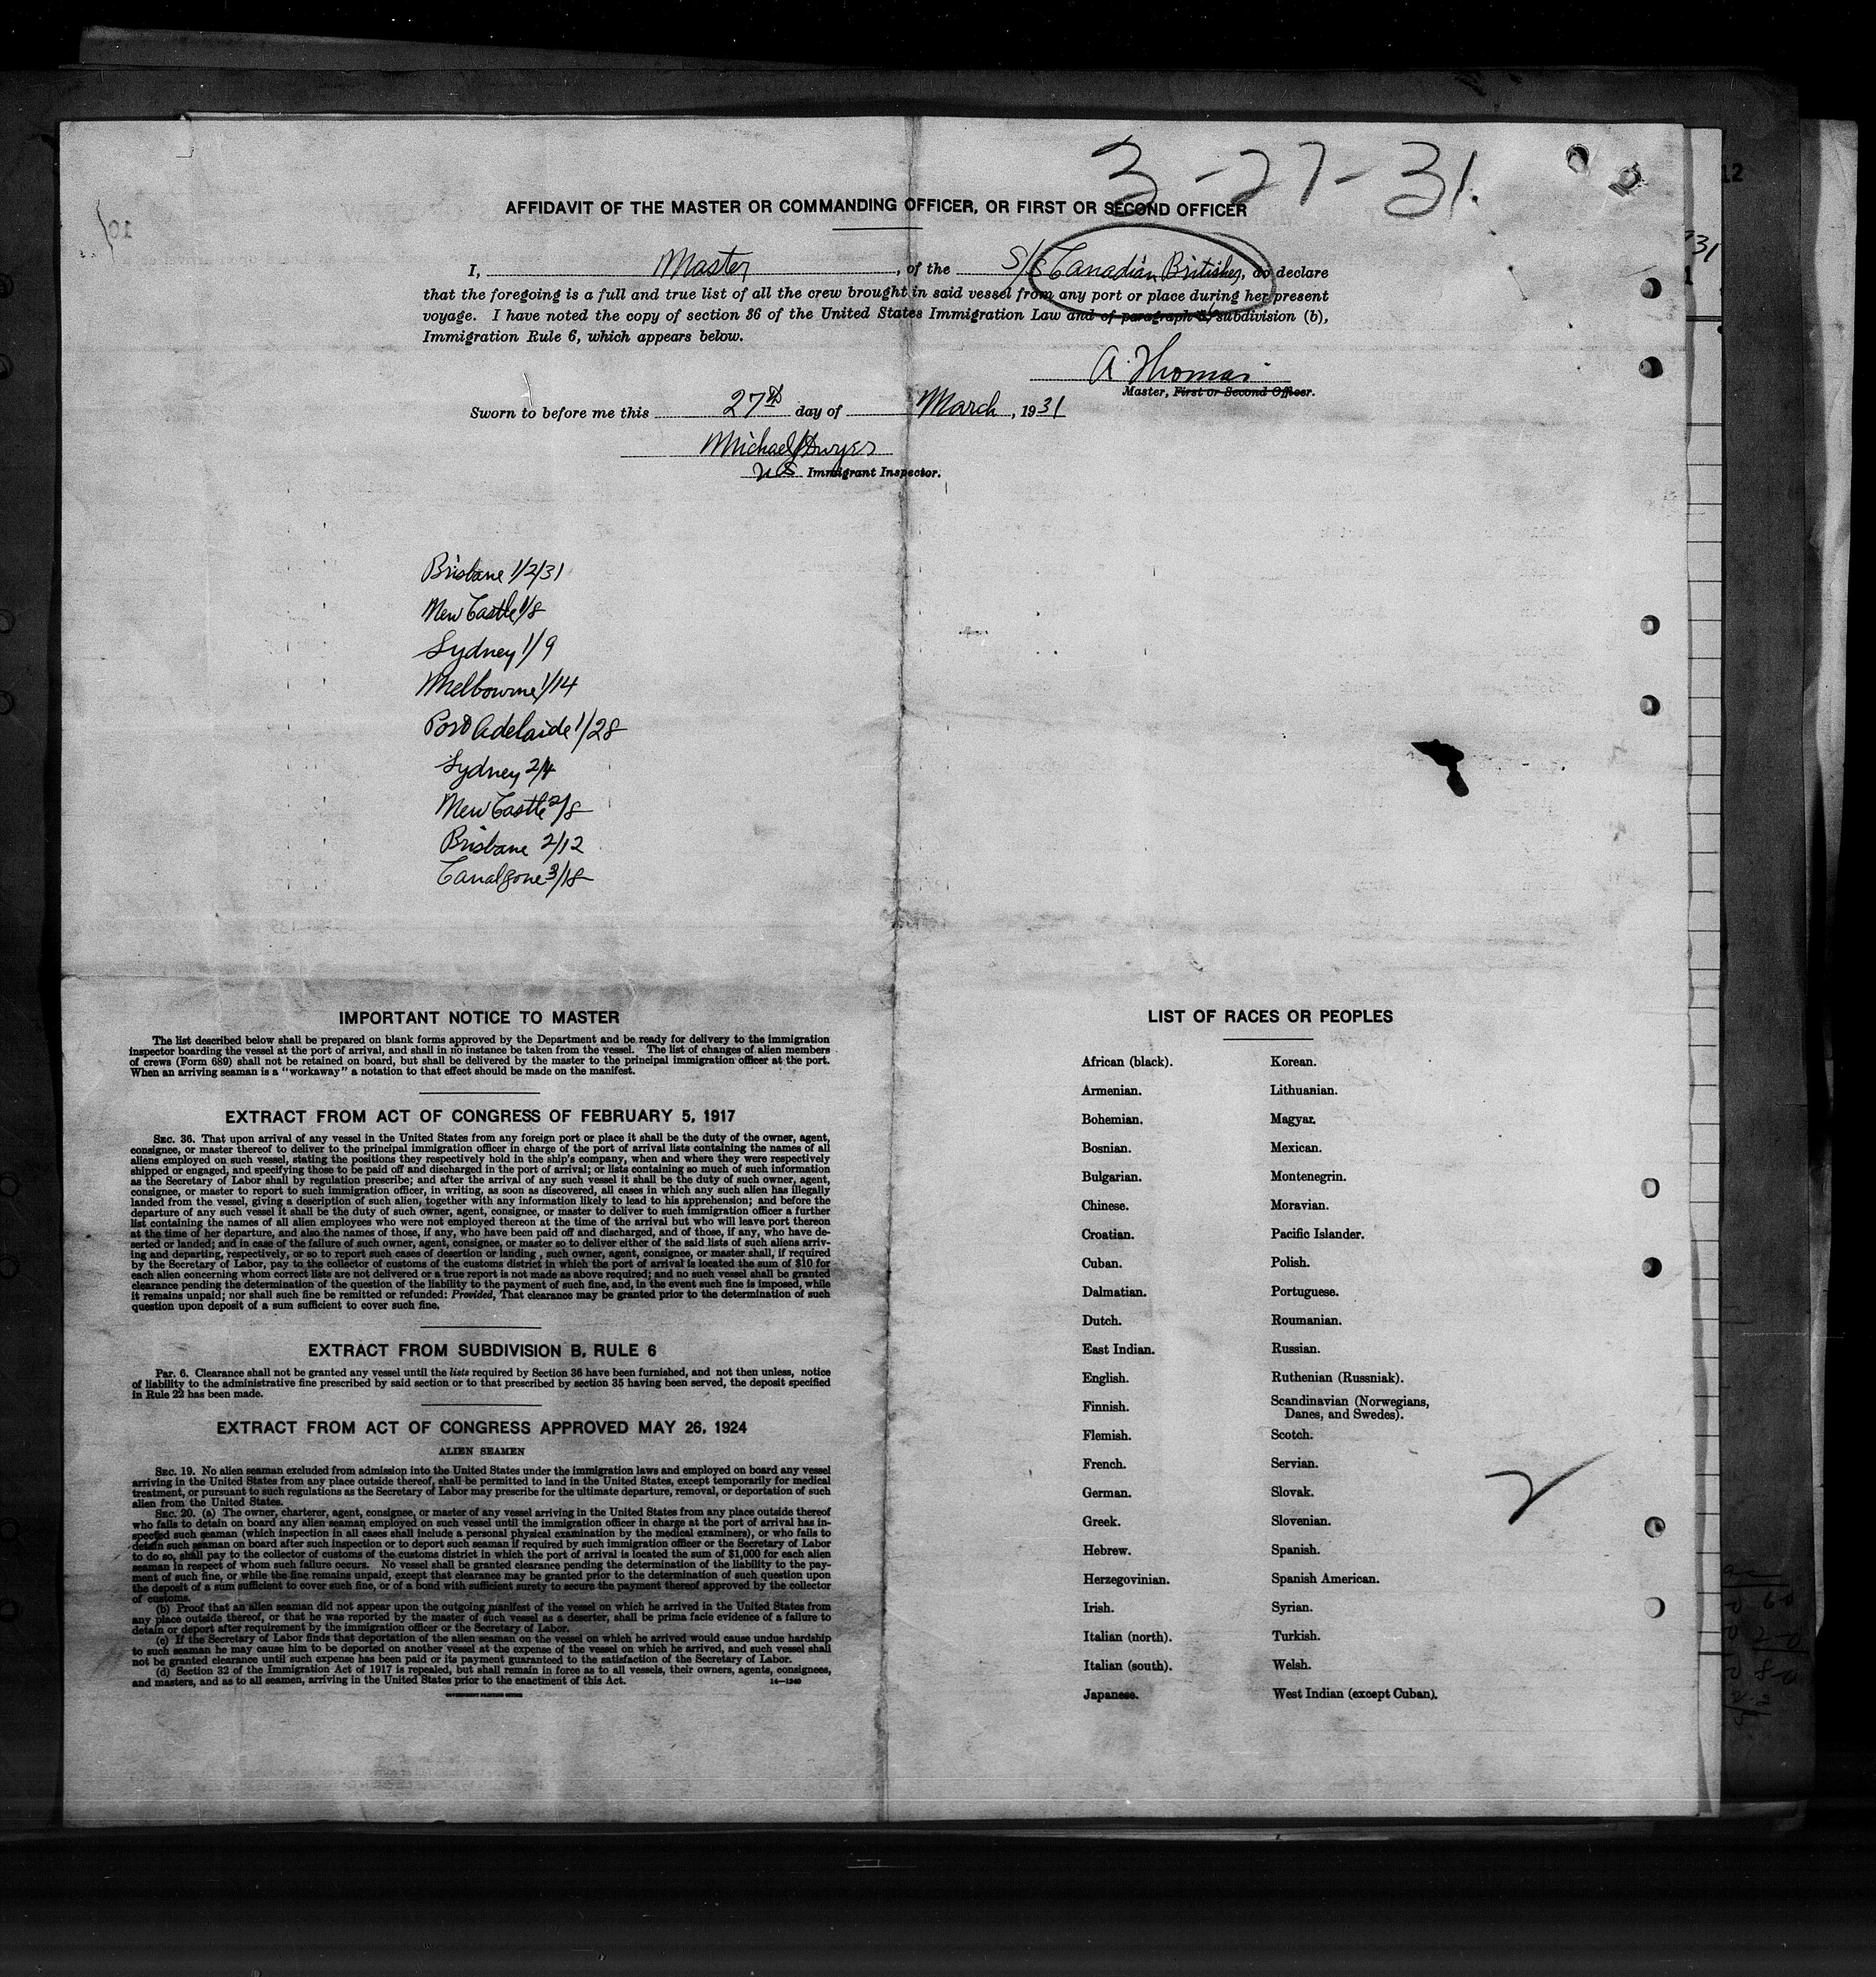 3-27-31.
AFFIDAVIT OF THE MASTER OR COMMANDING OFFICER, OR FIRST OR SECOND OFFICER
I, Master, of the S/S Canadian Britisher, do declare
that the foregoing is a full and true list of all the crew brought in said vessel from any port or place during her present
voyage. I have noted the copy of section 36 of the United States Immigration Law and of paragraph 6, subdivision (b),
Immigration Rule 6, which appears below.
A. Thomas
Master, First or Second Officer.
Sworn to before me this 27th day of March, 1931
Michael Dwyer
US Immigrant Inspector.
Brisbane 1/2/31
New Castle 1/8
Sydney 1/9
Melbourne 1/14
Port Adelaide 1/28
Sydney 2/4
New Castle 2/8
Brisbane 2/12
Canal Zone 3/18
IMPORTANT NOTICE TO MASTER
The list described below shall be prepared on blank forms approved by the Department and be ready for delivery to the immigration
inspector boarding the vessel at the port of arrival, and shall in no instance be taken from the vessel. The list of changes of alien members
of crews (Form 689) shall not be retained on board, but shall be delivered by the master to the principal immigration officer at the port.
When an arriving seaman is a "workaway" a notation to that effect should be made on the manifest.
EXTRACT FROM ACT OF CONGRESS OF FEBRUARY 5, 1917
SEC. 36. That upon arrival of any vessel in the United States from any foreign port or place it shall be the duty of the owner, agent,
consignee, or master thereof to deliver to the principal immigration officer in charge of the port of arrival lists containing the names of all
aliens employed on such vessel, stating the positions they respectively hold in the ship's company, when and where they were respectively
shipped or engaged, and specifying those to be paid off and discharged in the port of arrival; or lists containing so much of such information
as the Secretary of Labor shall by regulation prescribe; and after the arrival of any such vessel it shall be the duty of such owner, agent,
consignee, or master to report to such immigration officer, in writing, as soon as discovered, all cases in which any such alien has illegally
landed from the vessel, giving a description of such alien, together with any information likely to lead to his apprehension; and before the
departure of any such vessel it shall be the duty of such owner, agent, consignee, or master to deliver to such immigration officer a further
list containing the names of all alien employees who were not employed thereon at the time of the arrival but who will leave port thereon
at the time of her departure, and also the names of those, if any, who have been paid off and discharged, and of those, if any, who have de-
serted or landed; and in case of the failure of such owner, agent, consignee, or master so to deliver either of the said lists of such aliens arriv-
ing and departing, respectively, or so to report such cases of desertion or landing , such owner, agent, consignee, or master shall, if required
by the Secretary of Labor, pay to the collector of customs of the customs district in which the port of arrival is located the sum of $10 for
each alien concerning whom correct lists are not delivered or a true report is not made as above required; and no such vessel shall be granted
clearance pending the determination of the question of the liability to the payment of such fine, and, in the event such fine is imposed, while
it remains unpaid; nor shall such fine be remitted or refunded: Provided, That clearance may be granted prior to the determination of such
question upon deposit of a sum sufficient to cover such fine.
EXTRACT FROM SUBDIVISION B, RULE 6
Par. 6. Clearance shall not be granted any vessel until the lists required by Section 36 have been furnished, and not then unless, notice
of liability to the administrative fine prescribed by said section or to that prescribed by section 35 having been served, the deposit specified
in Rule 22 has been made.
EXTRACT FROM ACT OF CONGRESS APPROVED MAY 26, 1924
ALIEN SEAMEN
SEC. 19. No alien seaman excluded from admission into the United States under the immigration laws and employed on board any vessel
arriving in the United States from any place outside thereof, shall be permitted to land in the United States, except temporarily for medical
treatment, or pursuant to such regulations as the Secretary of Labor may prescribe for the ultimate departure, removal, or deportation of such
alien from the United States.
SEC. 20. (a) The owner, charterer, agent, consignee, or master of any vessel arriving in the United States from any place outside thereof
who fails to detain on board any alien seaman employed on such vessel until the immigration officer in charge at the port of arrival has in-
spected such seaman (which inspection in all cases shall include a personal physical examination by the medical examiners), or who fails to
detain such seaman on board after such inspection or to deport such seaman if required by such immigration officer or the Secretary of Labor
to do so, shall pay to the collector of customs of the customs district in which the port of arrival is located the sum of $1,000 for each alien
seaman in respect of whom such failure occurs. No vessel shall be granted clearance pending the determination of the liability to the pay-
ment of such fine, or while the fine remains unpaid, except that clearance may be granted prior to the determination of such question upon
the deposit of a sum sufficient to cover such fine, or of a bond with sufficient surety to secure the payment thereof approved by the collector
of customs.
(b) Proof that an alien seaman did not appear upon the outgoing manifest of the vessel on which he arrived in the United States from
any place outside thereof, or that he was reported by the master of such vessel as a deserter, shall be prima facie evidence of a failure to
detain or deport after requirement by the immigration officer or the Secretary of Labor.
(c) If the Secretary of Labor finds that deportation of the alien seaman on the vessel on which he arrived would cause undue hardship
to such seaman he may cause him to be deported on another vessel at the expense of the vessel on which he arrived, and such vessel shall
not be granted clearance until such expense has been paid or its payment guaranteed to the satisfaction of the Secretary of Labor.
(d) Section 32 of the Immigration Act of 1917 is repealed, but shall remain in force as to all vessels, their owners, agents, consignees,
and masters, and as to all seamen, arriving in the United States prior to the enactment of this Act.
14—1240
GOVERNMENT PRINTING OFFICE
LIST OF RACES OR PEOPLES
African (black).
Armenian.
Bohemian.
Bosnian.
Bulgarian.
Chinese.
Croatian.
Cuban.
Dalmatian.
Dutch.
East Indian.
English.
Finnish.
Flemish.
French.
German.
Greek.
Hebrew.
Herzegovinian.
Irish.
Italian (north).
Italian (south).
Japanese.
Korean.
Lithuanian.
Magyar.
Mexican.
Montenegrin.
Moravian.
Pacific Islander.
Polish.
Portuguese.
Roumanian.
Russian.
Ruthenian (Russniak).
Scandinavian (Norwegians,
Danes, and Swedes).
Scotch.
Servian.
Slovak.
Slovenian.
Spanish.
Spanish American.
Syrian.
Turkish.
Welsh.
West Indian (except Cuban).
12
31
1